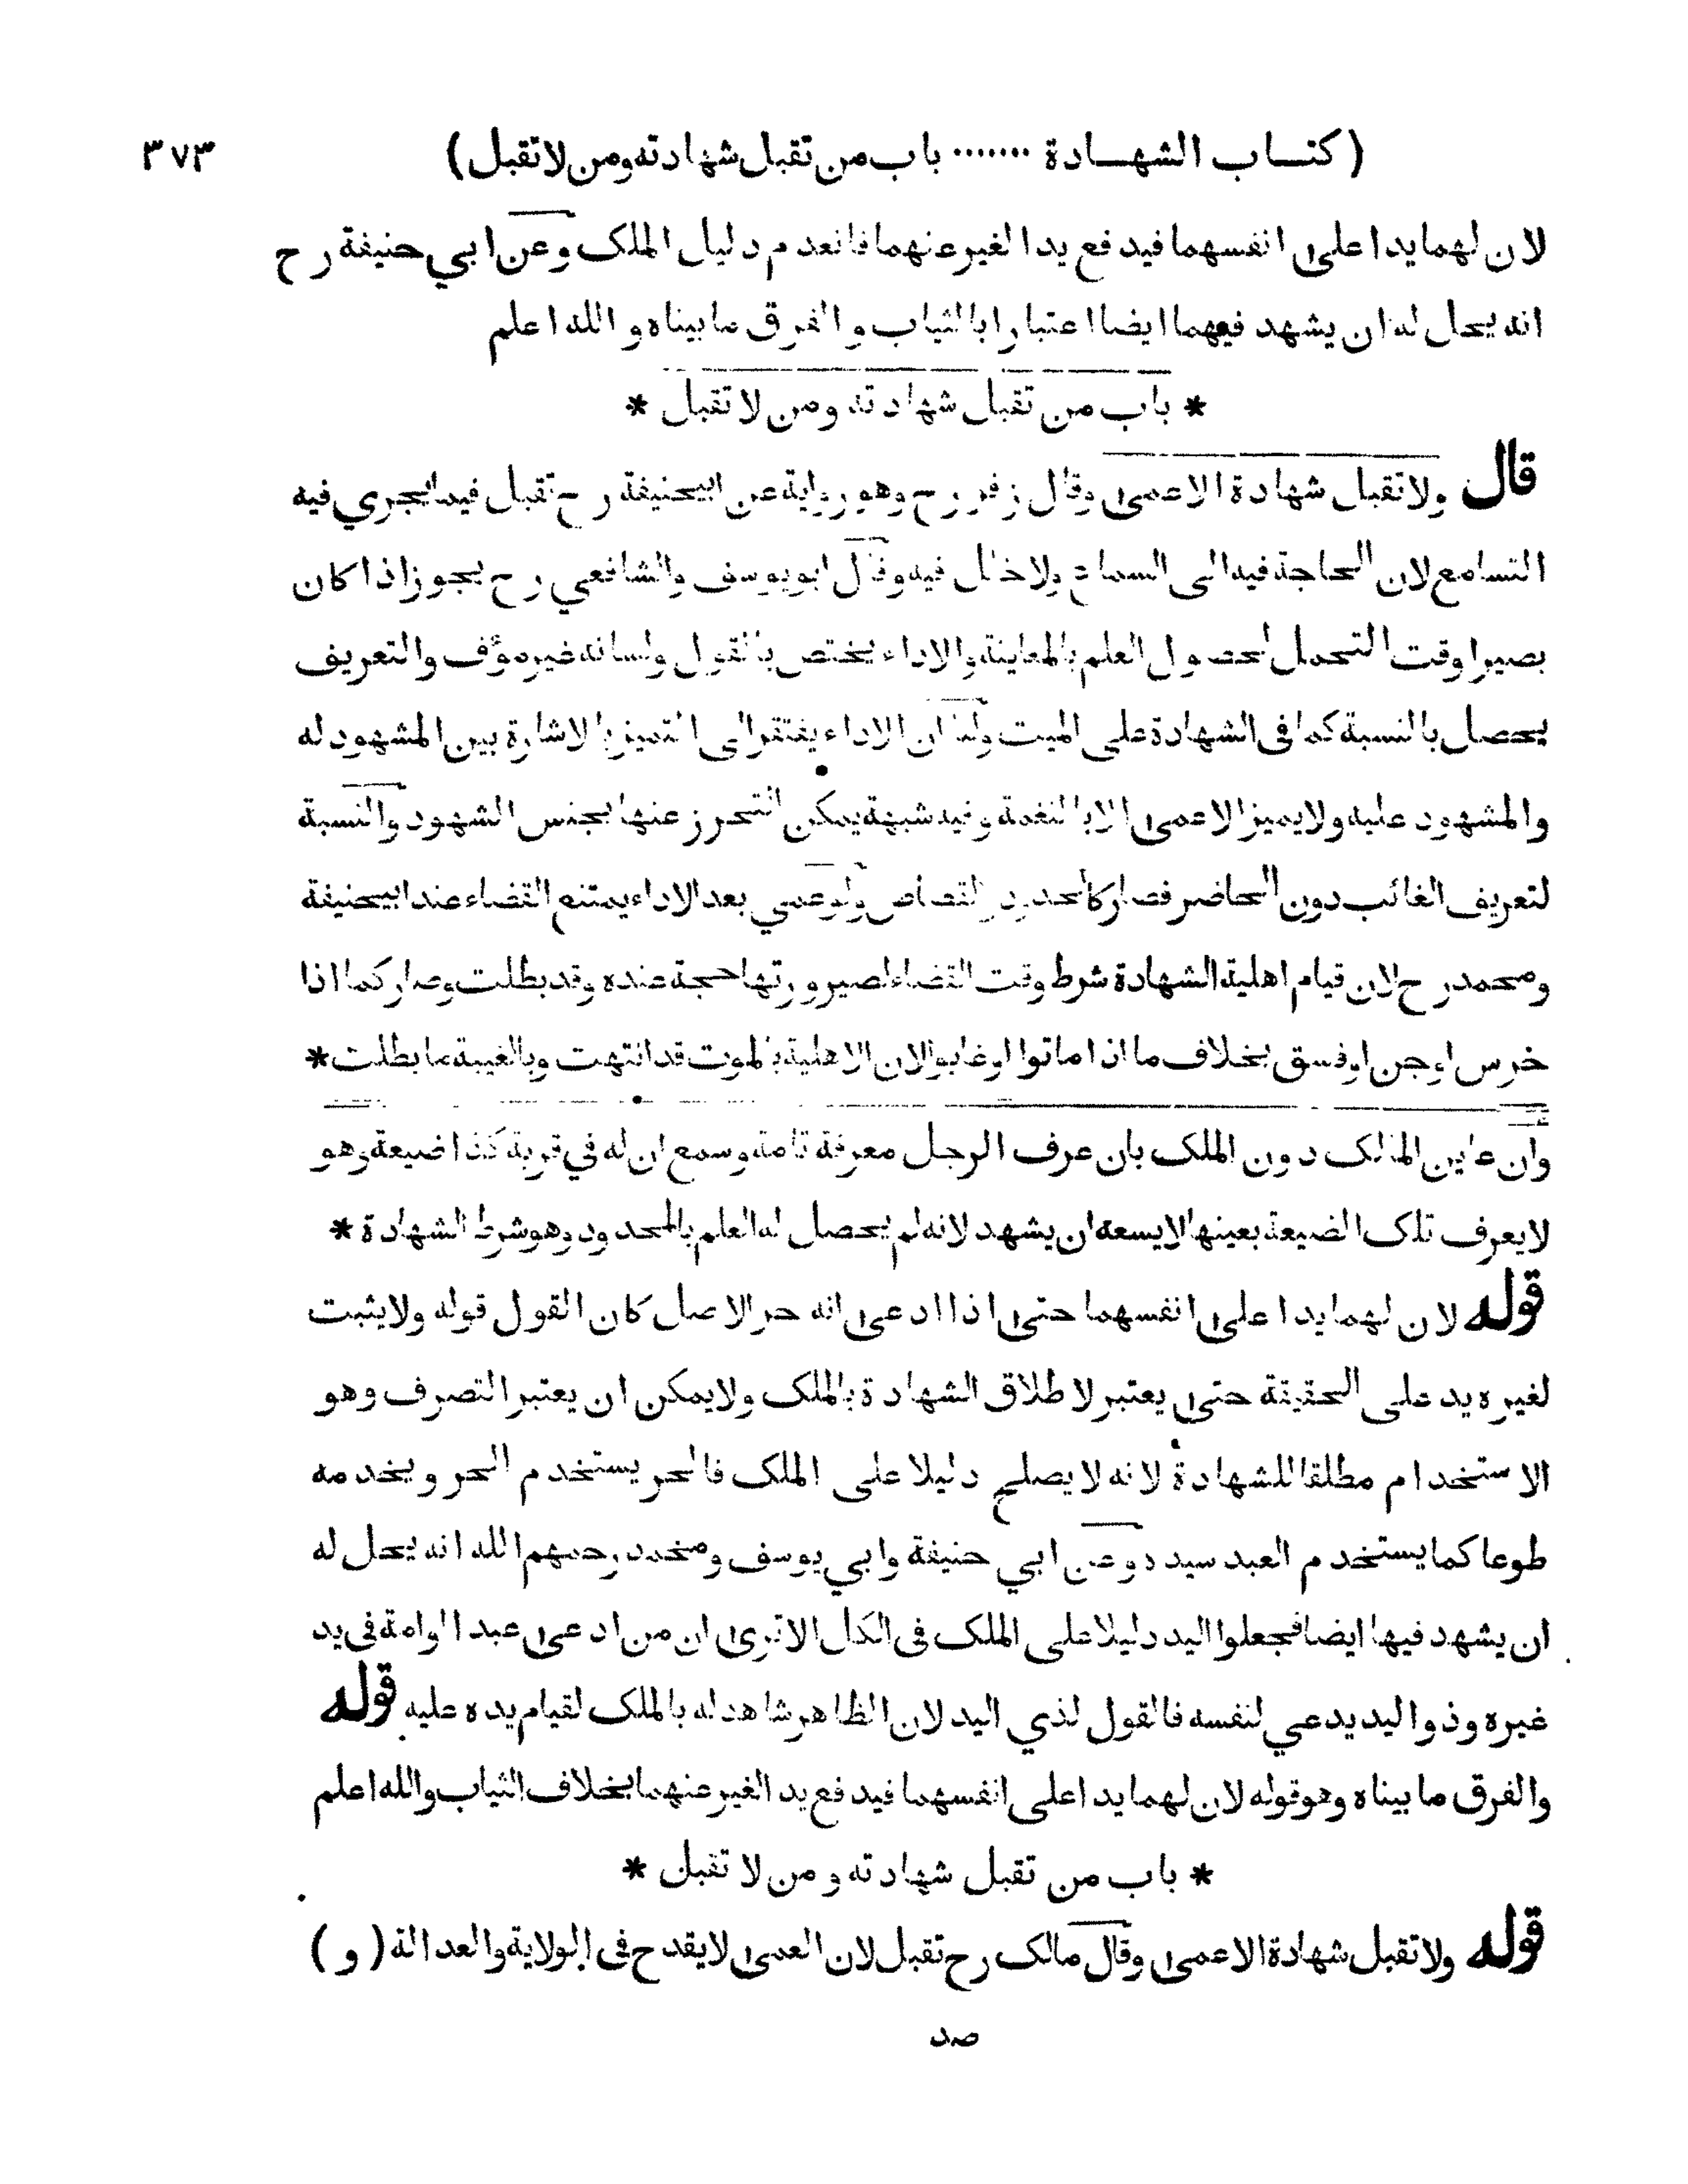 (كتاب الشهادة ....... باب من تقبل شهادته ومن لا تقبل) ٣٧٣
لان لهما يدا على انفسهما فيدفع يد الغير عنهما فانعدم دليل الملك وعن ابي حنيفة رح
انه يحل له ان يشهد فيهما ايضا اعتبارا بالثياب والفرق ما بيناه والله اعلم
* باب من تقبل شهادته ومن لا تقبل *
قال ولا تقبل شهادة الاعمى وقال زفر رح وهو رواية عن ابيحنيفة رح تقبل فيما يجري فيه
التسامع لان الحاجة فيه الى السماع ولا خلل فيه وقال ابو يوسف والشافعي رح يجوز اذا كان
بصيرا وقت التحمل لحصول العلم بالمعاينة والاداء يختص بالقول ولسانه غير مؤف والتعريف
يحصل بالنسبة كما في الشهادة على الميت ولنا ان الاداء يفتقر الى التميز بالاشارة بين المشهود له
والمشهود عليه ولا يميز الاعمى الا بالنغمة وفيه شبهة يمكن التحرز عنها بجنس الشهود والنسبة
لتعريف الغائب دون الحاضر فصار كالحدود والقصاص ولو عمي بعد الاداء يمتنع القضاء عند ابيحنيفة
ومحمد رح لان قيام اهلية الشهادة شرط وقت القضاء لصيرورتها حجة عنده وقد بطلت وصار كما اذا
خرس او جن او فسق بخلاف ما اذا ماتوا او غابوا لان الاهلية بالموت قد انتهت وبالغيبة ما بطلت *
وان عاين المالك دون الملك بان عرف الرجل معرفة تامة وسمع ان له في قرية كذا ضيعة وهو
لا يعرف تلك الضيعة بعينها لا يسعه ان يشهد لانه لم يحصل له العلم بالمحدود وهو شرط الشهادة *
قوله لان لهما يدا على انفسهما حتى اذا ادعى انه حر الاصل كان القول قوله ولا يثبت
لغيره يد على الحقيقة حتى يعتبر لاطلاق الشهادة بالملك ولا يمكن ان يعتبر التصرف وهو
الاستخدام مطلقا للشهادة لانه لا يصلح دليلا على الملك فالحر يستخدم الحر ويخدمه
طوعا كما يستخدم العبد سيده وعن ابي حنيفة وابي يوسف ومحمد رحمهم الله انه يحل له
ان يشهد فيها ايضا فجعلوا اليد دليلا على الملك في الكل الا ترى ان من ادعى عبدا او امة في يد
غيره وذو اليد يدعي لنفسه فالقول لذي اليد لان الظاهر شاهد له بالملك لقيام يده عليه قوله
والفرق ما بيناه وهو قوله لان لهما يدا على انفسهما فيدفع يد الغير عنهما بخلاف الثياب والله اعلم
* باب من تقبل شهادته ومن لا تقبل *
قوله ولا تقبل شهادة الاعمى وقال مالك رح تقبل لان العمى لا يقدح في الولاية والعدالة (و)
صد